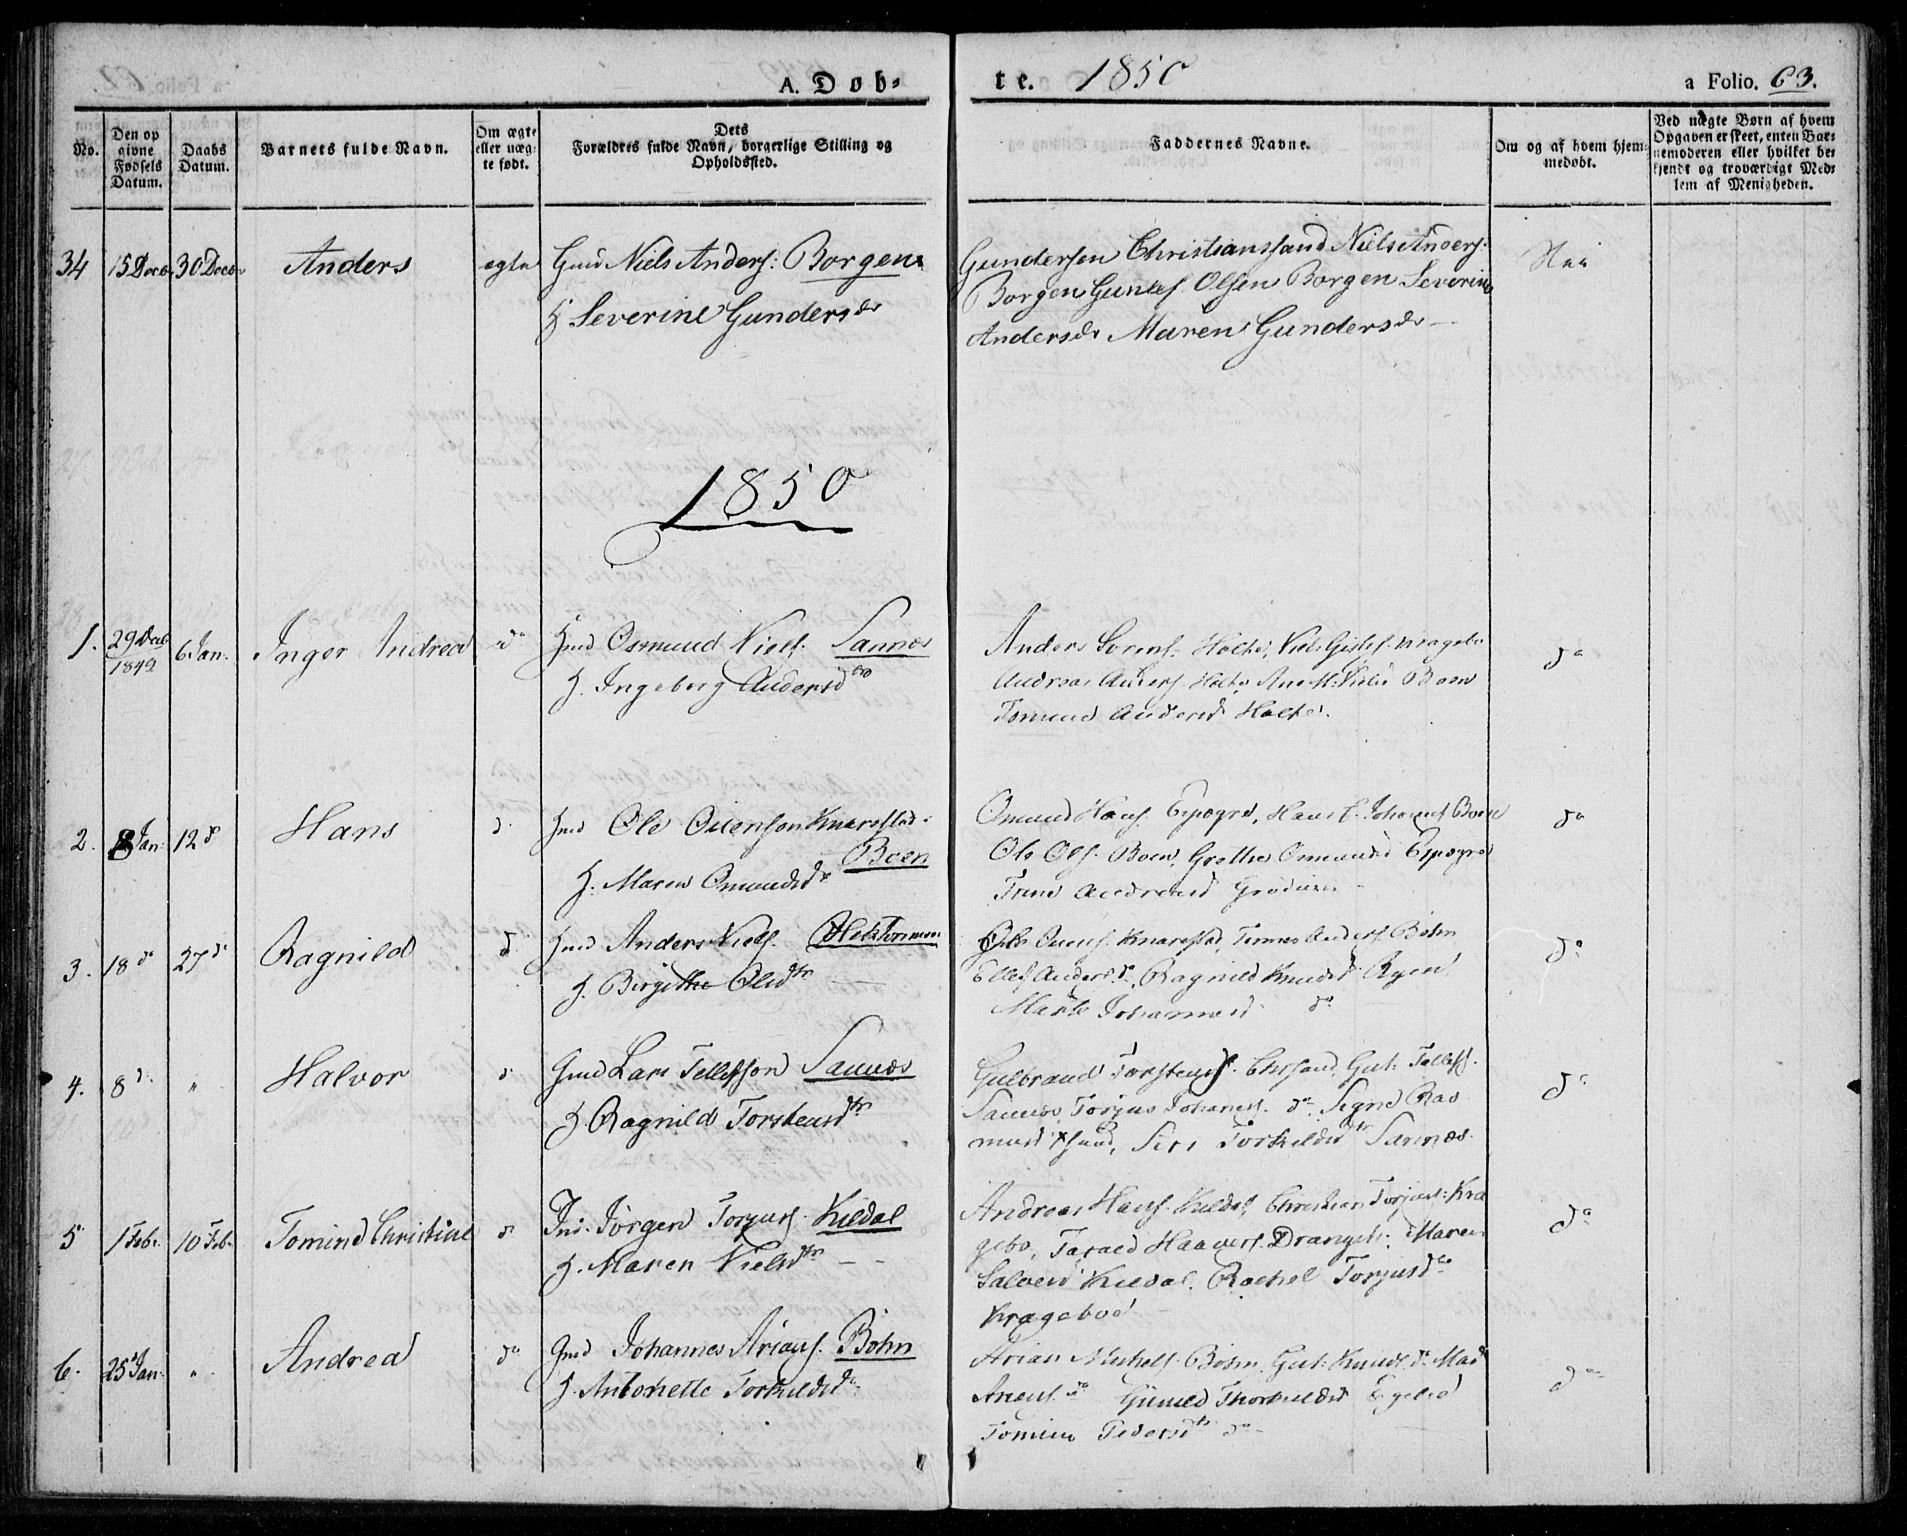 A. Døb-
te. 1850
a Folio. 63.
No.
Den op
givne
Fødsels
Datum.
Daabs
Datum.
Barnets fulde Navn.
Om ægte
eller uæg-
te født.
Dets
Forældres fulde Navn, borgerlige Stilling og
Opholdssted.
Faddernes Navne.
Om og af hvem hjem-
medøbt.
Ved uægte Børn af hvem
Opgaven er skeet, enten Bar-
nemoderen eller hvilket be-
kjendt og troværdigt Med-
lem af Menigheden.
34 15 Decbr 30 Decbr Anders ægte Gmd Niels Anders: Borgen
H Severine Gundersdr
Gundersen Christianssand Niels Anders:
Borgen Gunlef Olsen Borgen Severine
Andersdr Maren Gundersdr
1850
1. 29 Decb 1849 6 Jan. Inger Andrea do Gmd Osmund Niels. Sannæs
H. Ingeborg Andersd
Anders Sørens. Holte, Niels Gislef. Kragebo
Andreas Anders. Holte, Ane Boen
Tomine Andersd Holte.
do
2. 8 Jan. 12 do Hans d. Gmd Ole Knarestad
Boen
H. Maren Omundsdr
Omund Hans. Hans Johannes Boen
Ole Ols. Boen, Grethe Omundsd
Trine Andreasd
do
3. 18 do 27 do Ragnild d. Gmd Anders Niels.
H. Birgithe Olsdtr
Ole Knarestad, Tønnes Anders. Bøhn
Ellef Anders. do, Ragnild Knudsd Ryen
Marte Johannesd do
do
4. 8 d. " Halvor d Gmd Lars Tellefsson Sannæs
H. Ragnild Torstensdtr
Gulbrand Torstens. Chrsand, Gut: Tellefs.
Sannæs Torjus Johanes. do Signe Ras
musd Siri Torkildsdtr Sannæs.
do
5 1 Feb. 10 Feb. Tomine Christine d Jørgen Torjus. Kildal
H. Maren Nielsdtr
Andreas Hans. Kildal, Christian Torjus: Kra
gebo, Tarald Haavors. Drangsh: Maren
Salvesd Kildal. Rachel Torjusdr
Krageboe
do
6. 25 Jan. " Andrea do Gmd Johannes Arians. Bøhn
H. Antonette Torkildsdr
Arian Michels. Bøhn, Gut: Knuds. do Mads
Arens. do Gunild Thorkildsd Egelid
Tomine Pedersdtr do
do